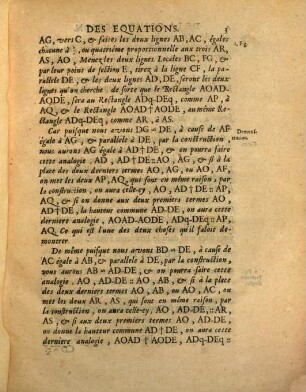 DES EQUATIONS. 3
AG, vers C, & faites les deux lignes AB, AC, égales
chacune à, ou quatrième proportionnelle aux trois AR,
AS, AO, Menez les deux lignes Locales BC, FG, &
par leur point de section E, tirez à la ligne CF, la pa-
rallele DE, les deux lignes AD, DE, seront les deux
lignes qu'on cherche de sorte que le Rectangle AOAD-
AODE, sera au Rectangle ADq-DEq, comme AP, à
AQ, & le Rectangle AOAD†AODE, au même Re-
ctangle ADq-DEq, comme AR, à AS.
Car puisque nous avons DG = DE, à cause de AF
égale à AG, & parallèle à DE, par la construction,
nous aurons AG égale à AD†DE, & on pourra faire
cette analogie, AD, AD†DE :: AO, AG, & si à la
place des deux derniers termes AO, AG, ou AO, AF,
on met les deux AP, AQ, qui sont en même raison, par
la construction, on aura celle-cy, AO, AD†DE :: AP,
AQ, & si on donne aux deux premiers termes AO,
AD†DE, la hauteur commune AD-DE, on aura cette
derniere analogie, AOAD-AODE, ADq-DEq :: AP,
AQ. Ce qui est l'une des deux choses qu'il faloit de-
montrer.
De même puisque nous avons BD = DE, à cause de
AC égale à AB, & parallele à DE, par la construction,
nous aurons AB = AD-DE, & on pourra faire cette
analogie, AO, AD-DE :: AO, AB, & si à la place
des deux derniers termes AO, AB, ou AO, AC, on
met les deux AR, AS, qui sont en même raison, par
la construction, on aura celle-cy, AO, AD-DE, :: AR,
AS, & si aux deux premiers termes AO, AD-DE,
on donne la hauteur commune AD†DE, on aura cette
derniere analogie, AOAD†AODE, ADq-DEq ::